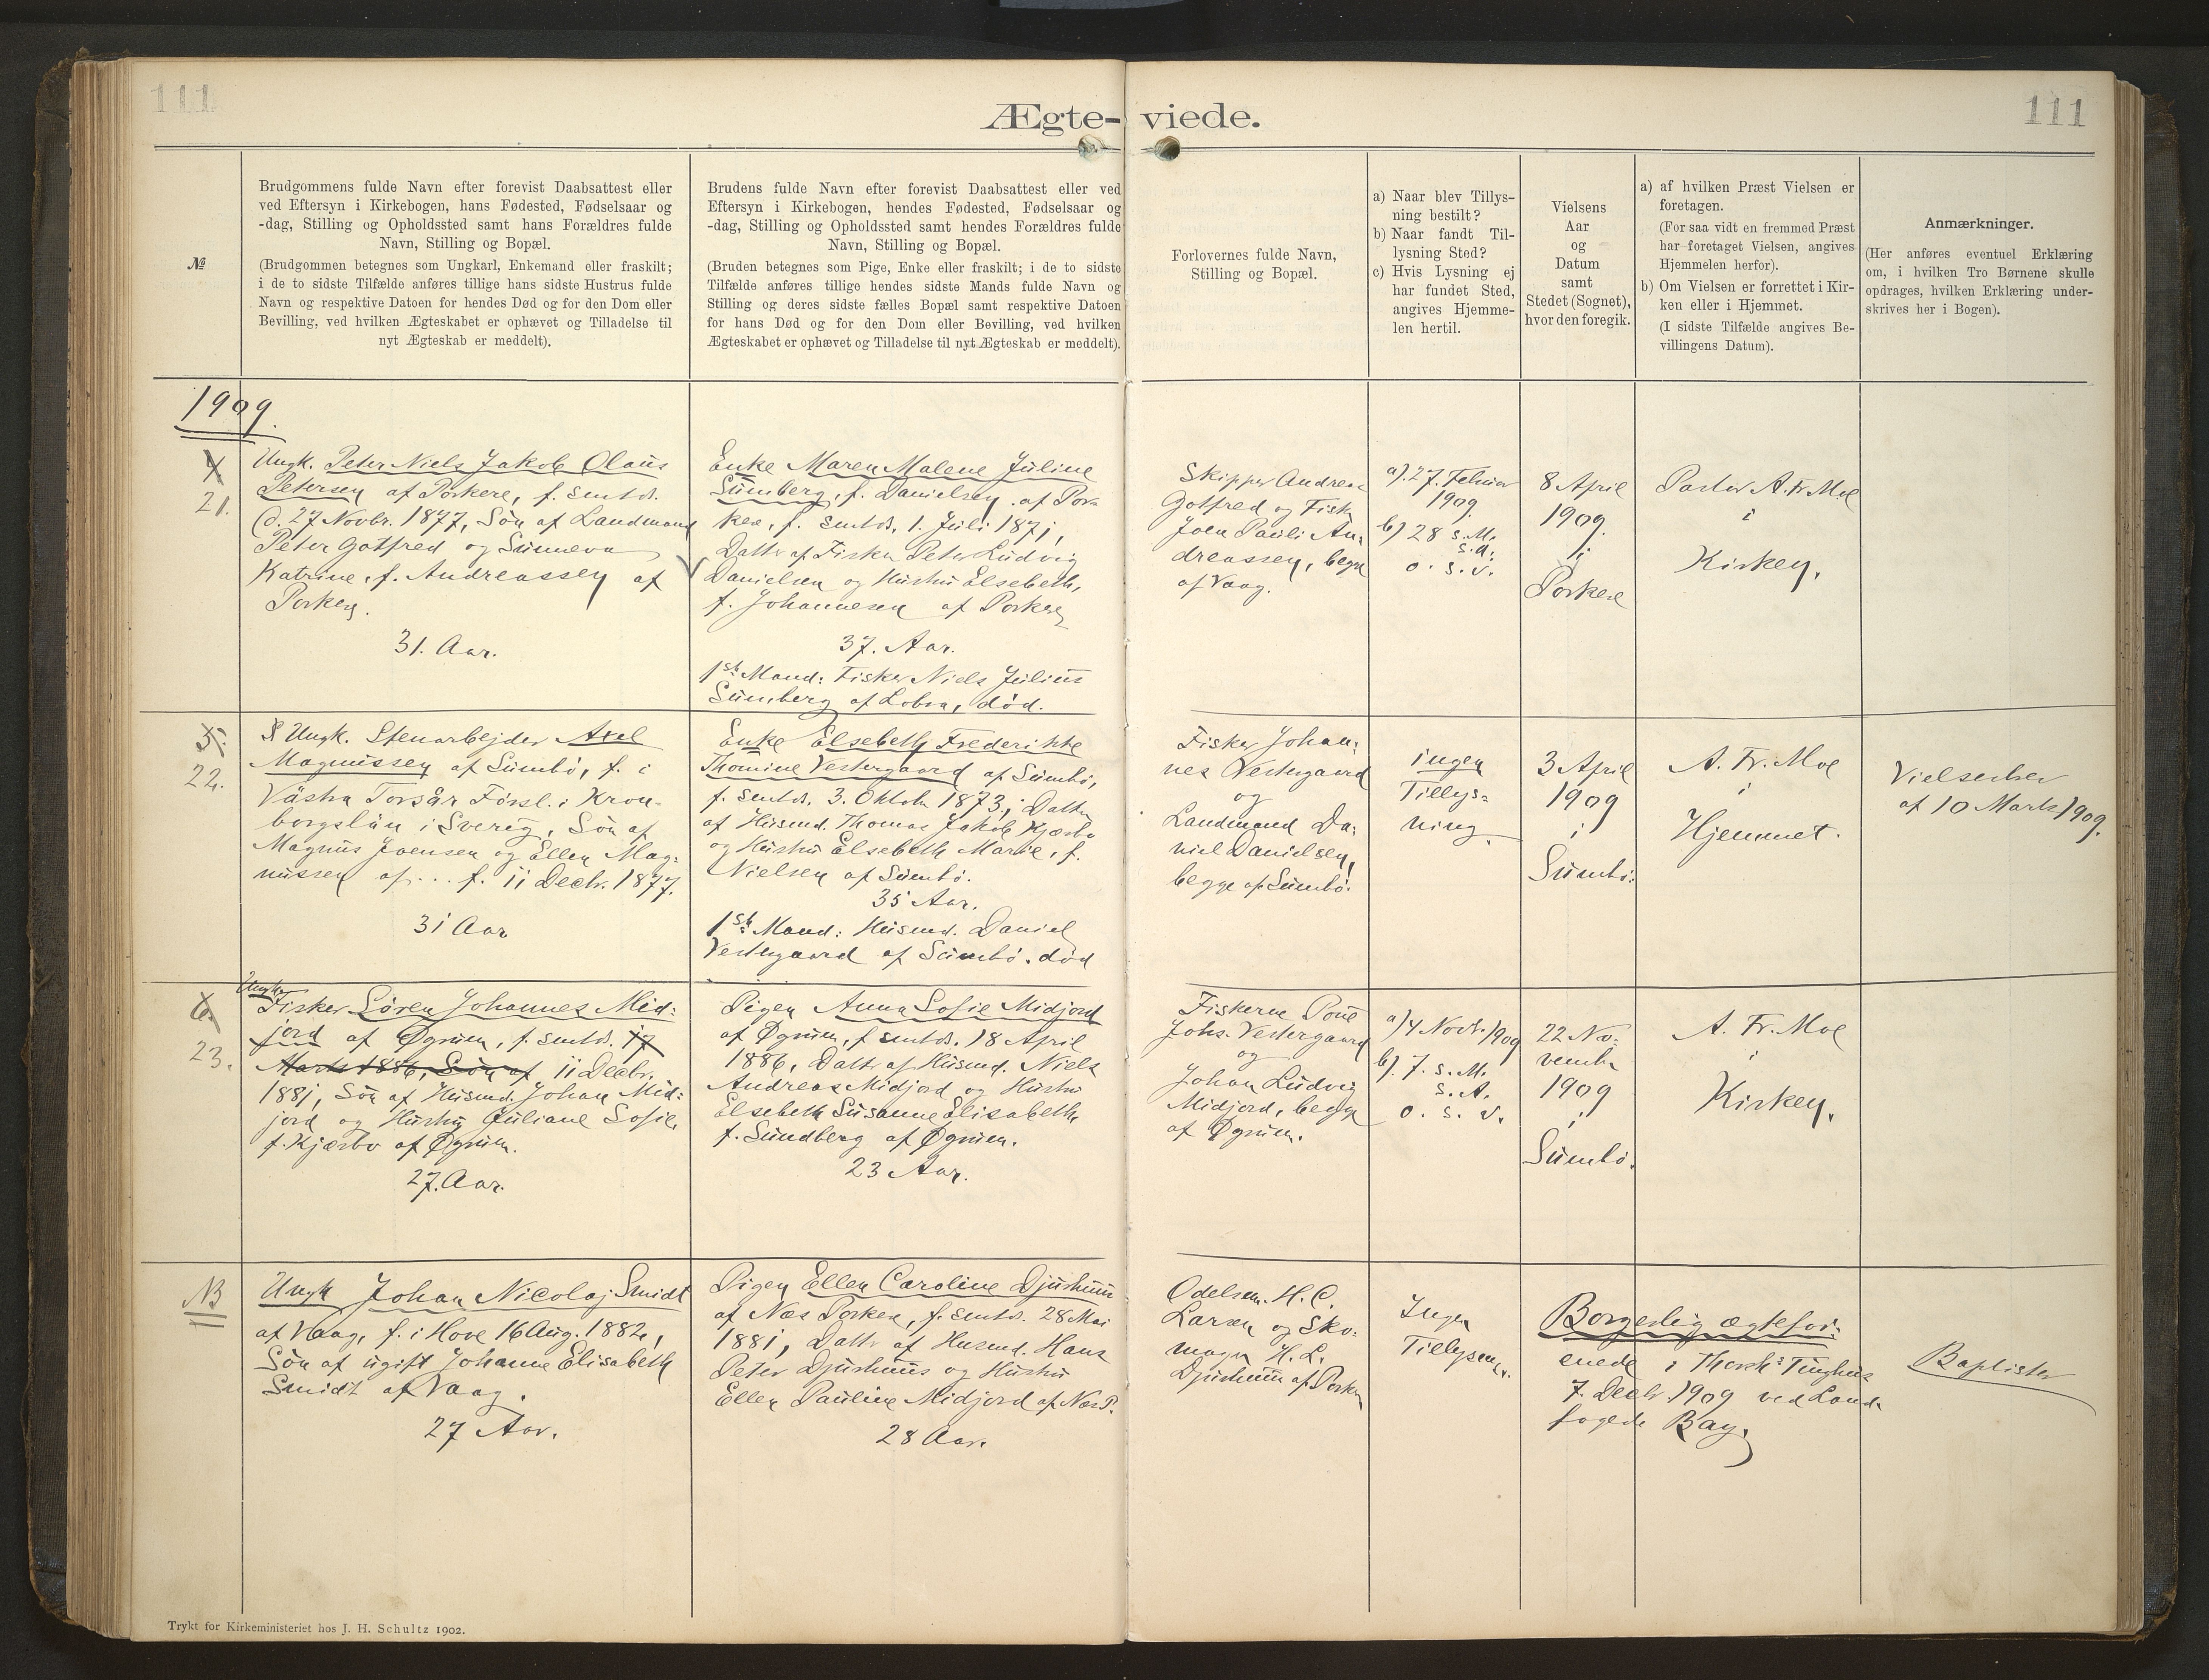 111
111
Ægte- viede.
№
Brudgommens fulde Navn efter forevist Daabsattest eller
ved Eftersyn i Kirkebogen, hans Fødested, Fødselsaar og
-dag, Stilling og Opholdssted samt hans Forældres fulde
Navn, Stilling og Bopæl.
(Brudgommen betegnes som Ungkarl, Enkemand eller fraskilt;
i de to sidste Tilfælde anføres tillige hans sidste Hustrus fulde
Navn og respektive Datoen for hendes Død og for den Dom eller
Bevilling, ved hvilken Ægteskabet er ophævet og Tilladelse til
nyt Ægteskab er meddelt).
Brudens fulde Navn efter forevist Daabsattest eller ved
Eftersyn i Kirkebogen, hendes Fødested, Fødselsaar og
-dag, Stilling og Opholdssted samt hendes Forældres fulde
Navn, Stilling og Bopæl.
(Bruden betegnes som Pige, Enke eller fraskilt; i de to sidste
Tilfælde anføres tillige hendes sidste Mands fulde Navn og
Stilling og deres sidste fælles Bopæl samt respektive Datoen
for hans Død og for den Dom eller Bevilling, ved hvilken
Ægteskabet er ophævet og Tilladelse til nyt Ægteskab er meddelt).
Forlovernes fulde Navn,
Stilling og Bopæl.
a) Naar blev Tillys-
ning bestilt?
b) Naar fandt Til-
lysning Sted?
c) Hvis Lysning ej
har fundet Sted,
angives Hjemme-
len hertil.
Vielsens
Aar
og
Datum
samt
Stedet (Sognet),
hvor den foregik.
a) af hvilken Præst Vielsen er
foretagen.
(For saa vidt en fremmed Præst
har foretaget Vielsen, angives
Hjemmelen herfor).
b) Om Vielsen er forrettet i Kir-
ken eller i Hjemmet.
(I sidste Tilfælde angives Be-
villingens Datum).
Anmærkninger.
(Her anføres eventuel Erklæring
om, i hvilken Tro Børnene skulle
opdrages, hvilken Erklæring under-
skrives her i Bogen).
1909.
4
21.
Ungk. Peter Niels Jakob Olaus
Petersen af Porkere, f. smtds.
d. 27 Novbr. 1877, Søn af Landmand
Peter Gotfred og Sunneva
Katrine, f. Andreassen af
Porkere.
31. Aar.
Enke Maren Malene Juline
Sumberg, f. Danielsen, af Por-
kere, f. smtds. 1. Juli 1871,
Dattr af Fisker Peter Ludvig
Danielsen og Hustru Elsebeth,
f. Johannesen af Porkere
37. Aar.
1ste Mand: Fisker Niels Julius
Sumberg af Lobra, død.
Skipper Andreas
Gotfred og Fisker
Joen Pauli An-
dreassen, begge
af Vaag.
a). 27. Februar
1909.
b) 28 s. M.
s. A.
o. s. v.
8 April
1909
i
Porkere
Pastor A. Fr. Moe
i
Kirken.
5.
22.
Ungk. Stenarbejder Axel
Magnussen af Sumbø, f. i
Västra Torsås Försl. i Kron-
borgslän i Sverig, Søn af
Magnus Joensen og Ellen Mag-
nussen af ... f. 11 Decbr. 1877.
31 Aar
Enke Elsebeth Frederikke
Thomine Vestergaard af Sumbø,
f. smtds. 3. Oktobr 1873, Dattr
af Husmd. Thomas Jakob Kjærbo
og Hustru Elsebeth Marie, f.
Nielsen af Sumbø.
35 Aar.
1ste Mand: Husmd. Daniel
Vestergaard af Sumbø. død
Fisker Johan-
nes Vestergaard
og
Landmand Da-
niel Danielsen,
begge af Sumbø.
ingen
Tillys-
ning
3 April
1909
i
Sumbø.
A. Fr. Moe
i
Hjemmet.
Vielsesbrev
af 10 Marts 1909.
6.
23.
Ungk.
Fisker Søren Johannes Mid-
jord af Øgnum, f. smtds. 17
Marts 1886, Søn af 11 Decbr.
1881, Søn af Husmd. Johan Mid-
jord og Hustru Juliane Sofie,
f. Kjærbo af Øgnum.
27. Aar.
Pigen Anna Sofie Midjord
af Øgnum, f. smtds. 18 April
1886, Dattr af Husmd. Niels
Andreas Midjord og Hustru
Elsebeth Susanne Elisabeth,
f. Sundberg af Øgnum.
23 Aar.
Fiskerne Poul
Johs. Vestergaard
og
Johan Ludvig
Midjord, begge
af Øgnum.
a) 4 Novbr. 1909
b). 7. s. M.
s. A.
o. s. v.
22 No-
vembr
1909
i
Sumbø.
A. Fr. Moe
i
Kirken.
NB
Ungk Johan Nicolaj Smidt
af Vaag, f. i Hove 16 Aug. 1882,
Søn af ugift Johanne Elisabeth
Smidt af Vaag.
27 Aar.
Pigen Ellen Caroline Djurhuus
af Nes Porkere, f. smtds. 28 Mai
1881, Dattr af Husmd. Hans
Peter Djurhuus og Hustru
Ellen Pauline Midjord af Nes P.
28 Aar.
Odelsm. H. C.
Larsen og Sko-
mager H. L.
Djurhuus af Porkere
Ingen
Tillysen.
Borgerlig ægtefor-
enede i Thorsh. Tinghus
7. Decbr. 1909 ved Land-
foged Bay.
Baptister
Trykt for Kirkeministeriet hos J. H. Schultz 1902.